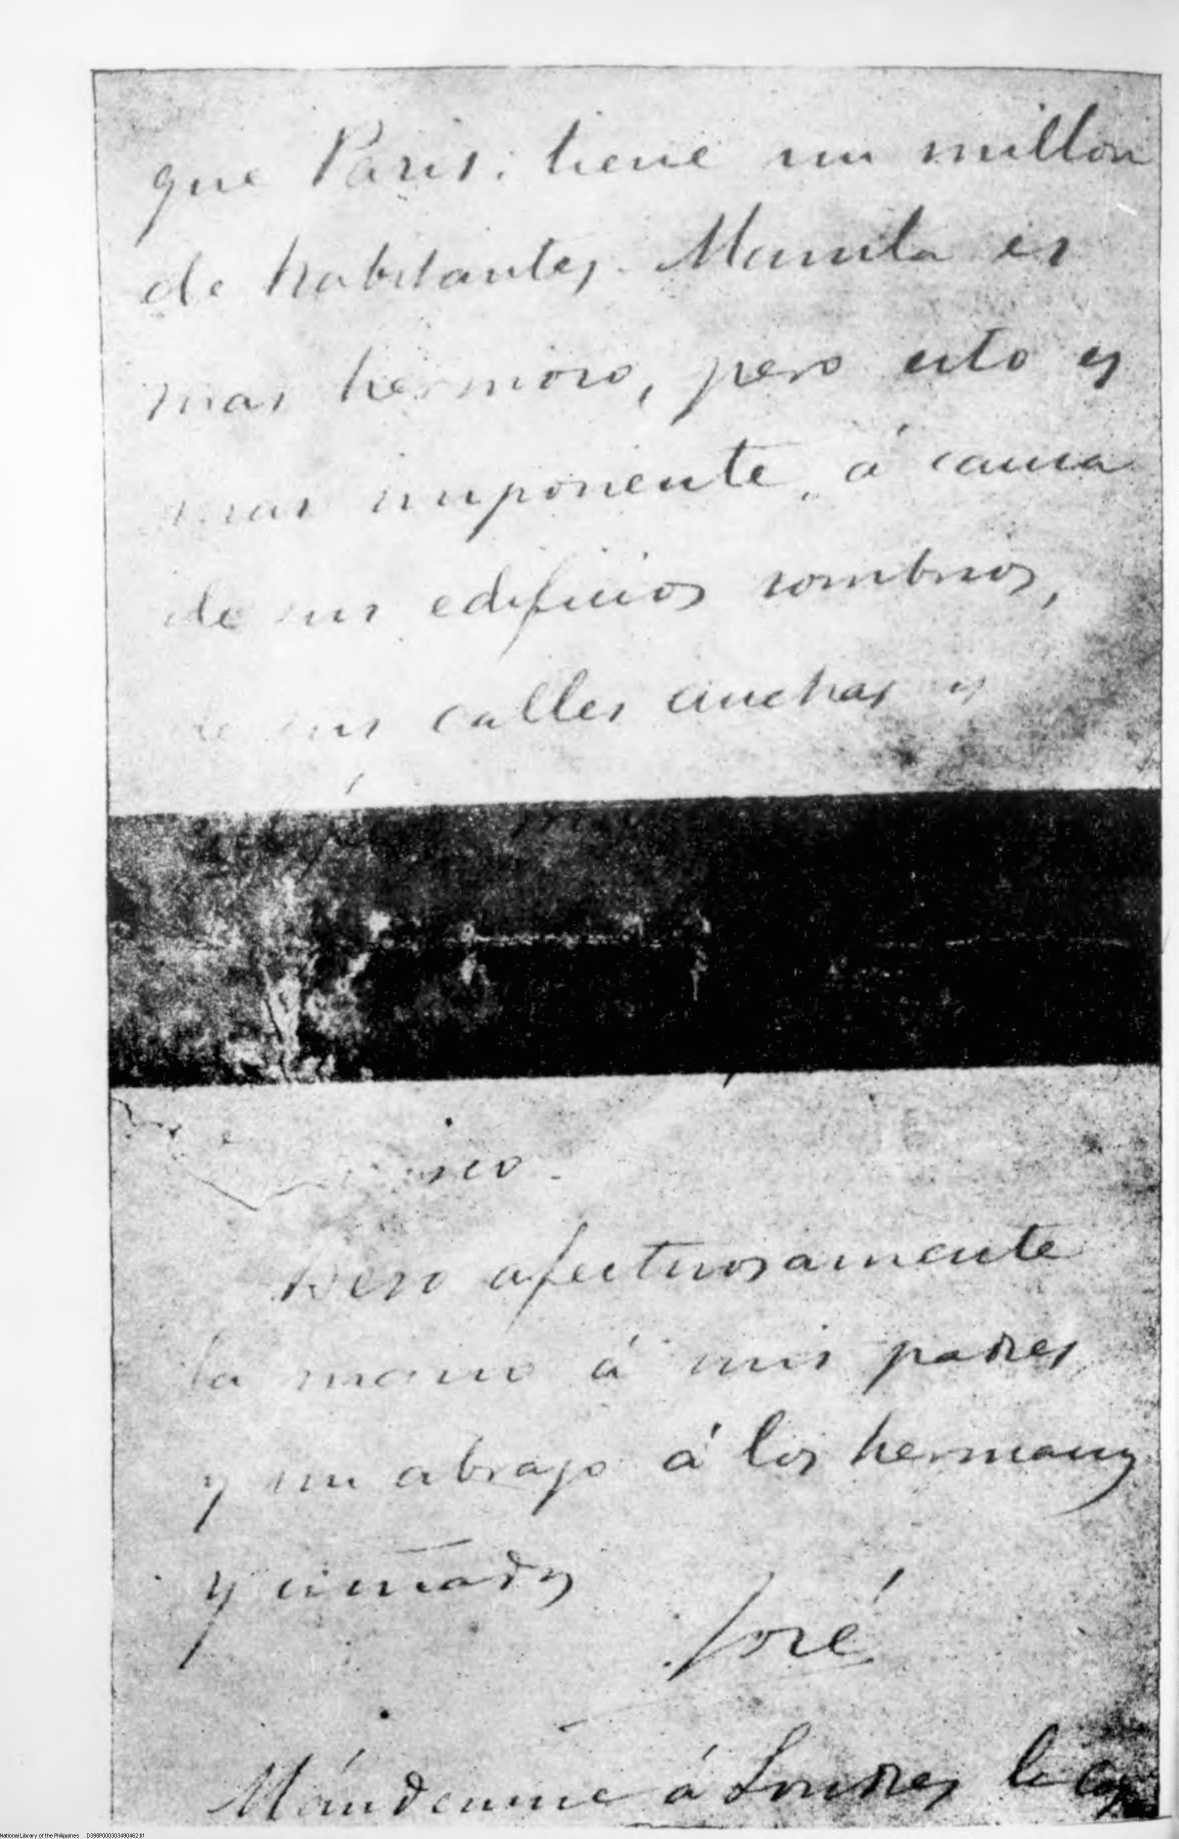 que Paris; tiene un millon
de habitantes. Manila es
mas hermoso, pero esto es
mas imponente, á causa
de sus edificios sombrios,
de sus calles anchas y
Beso afectuosamente
la mano á mis padres
y un abrazo á los hermanos
y cuñados
José
Mándenme á Londres la
National Library of the Philippines